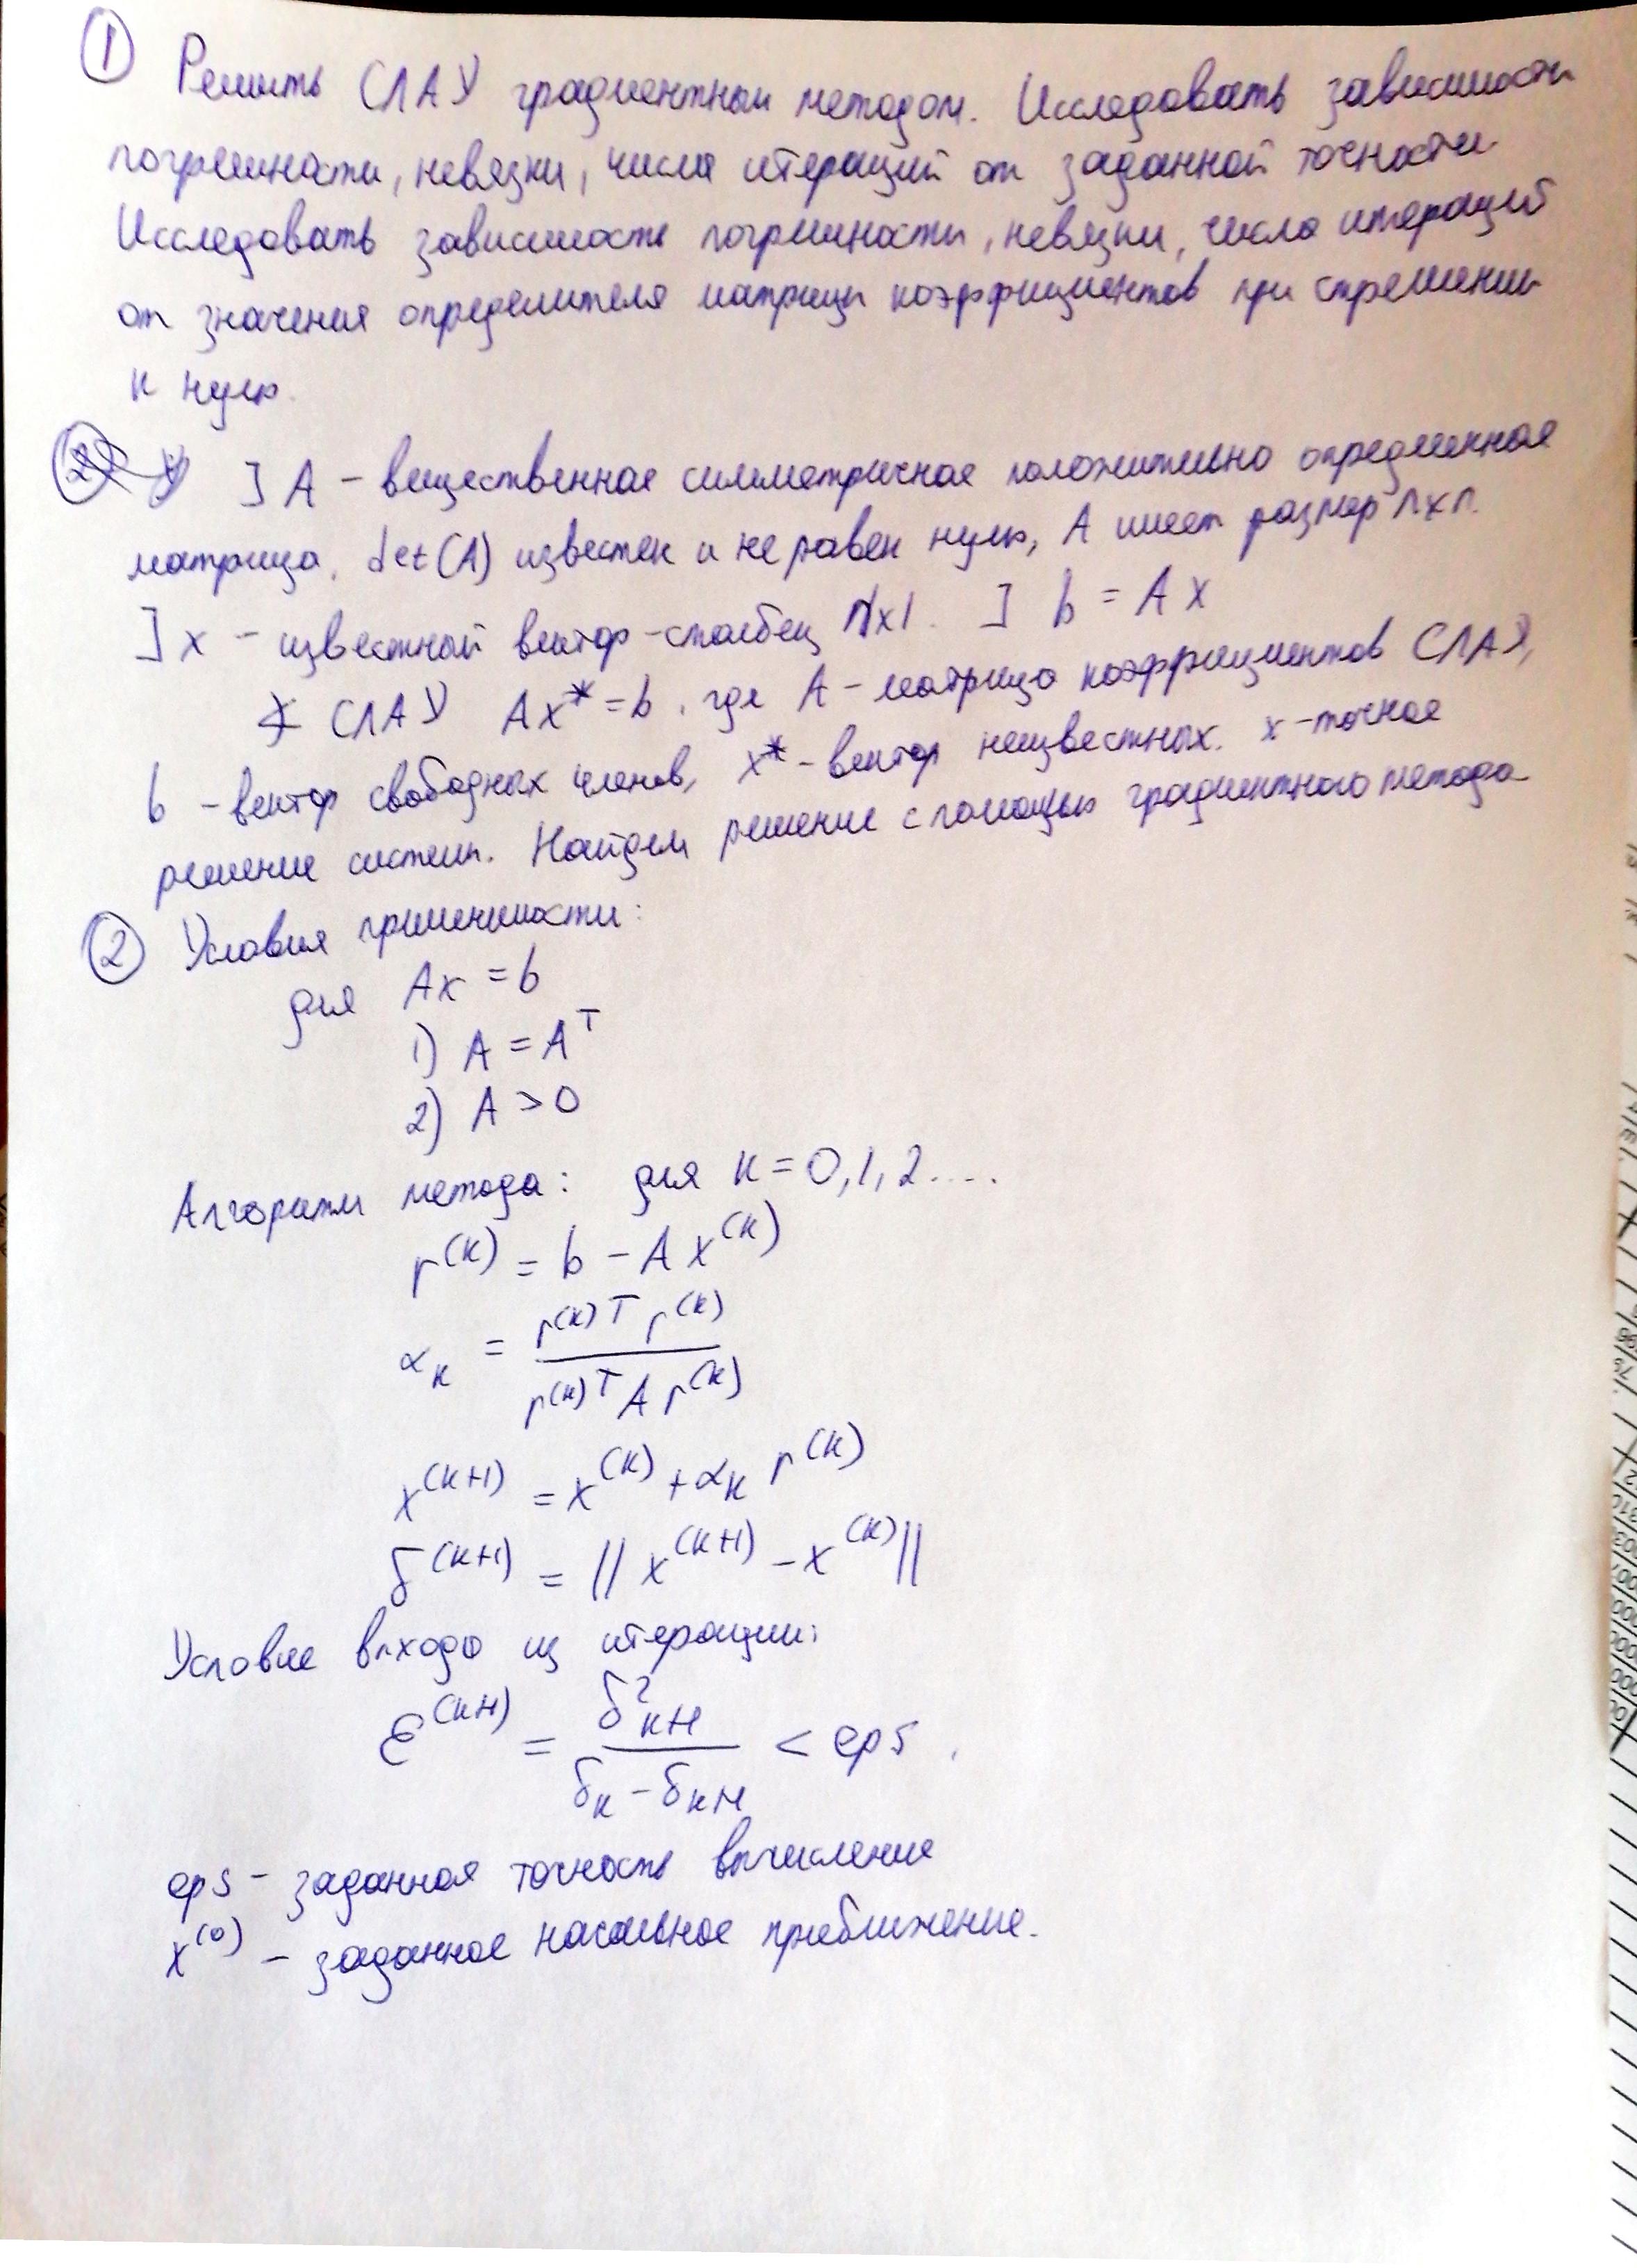 ① Решить СЛАУ градиентным методом. Исследовать зависимости
погрешности, невязки, числа итераций от заданной точности
Исследовать зависимость погрешности, невязки, числа итераций
от значения определителя матрицы коэффициентов при стремлении
к нулю.
] A – вещественная симметричная положительно определенная
матрица, det(A) известен и не равен нулю, A имеет размер n×n.
] x – известный вектор-столбец n×1. ] b = Ax
∢ СЛАУ Ax* = b, где A – матрица коэффициентов СЛАУ,
b – вектор свободных членов, x* – вектор неизвестных. x – точное
решение системы. Найдем решение с помощью градиентного метода
② Условия применимости:
для Ax = b
1) A = Aᵀ
2) A > 0
Алгоритм метода: для k = 0, 1, 2 ....
r^(k) = b – A x^(k)
α_k = (r^(k)ᵀ r^(k)) / (r^(k)ᵀ A r^(k))
x^(k+1) = x^(k) + α_k r^(k)
δ^(k+1) = || x^(k+1) – x^(k) ||
Условие выхода из итерации:
ε^(k+1) = δ²_k+1 / (δ_k – δ_k+1) < eps.
eps – заданная точность вычисления
x^(0) – заданное начальное приближение.